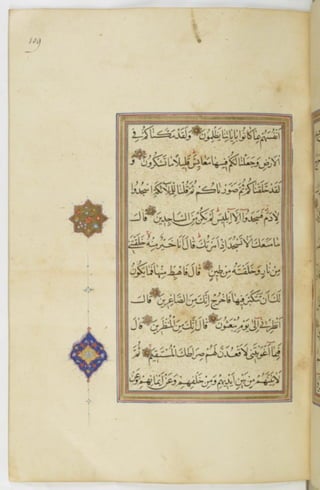 اَنْفُسَهُمْ بِمَا كَانُوا بِاٰيَاتِنَا يَظْلِمُونَ وَلَقَدْ مَكَّنَّاكُمْ فِي
الْاَرْضِ وَجَعَلْنَا لَكُمْ فِيهَا مَعَايِشَ قَلِيلًا مَا تَشْكُرُونَ وَ
لَقَدْ خَلَقْنَاكُمْ ثُمَّ صَوَّرْنَاكُمْ ثُمَّ قُلْنَا لِلْمَلٰئِكَةِ اسْجُدُوا
لِاٰدَمَ فَسَجَدُوا اِلَّا اِبْلِيسَ لَمْ يَكُنْ مِنَ السَّاجِدِينَ قَالَ
مَا مَنَعَكَ اَلَّا تَسْجُدَ اِذْ اَمَرْتُكَ قَالَ اَنَا خَيْرٌ مِنْهُ خَلَقْتَنِي
مِنْ نَارٍ وَخَلَقْتَهُ مِنْ طِينٍ قَالَ فَاهْبِطْ مِنْهَا فَمَا يَكُونُ
لَكَ اَنْ تَتَكَبَّرَ فِيهَا فَاخْرُجْ اِنَّكَ مِنَ الصَّاغِرِينَ قَالَ
اَنْظِرْنِي اِلٰى يَوْمِ يُبْعَثُونَ قَالَ اِنَّكَ مِنَ الْمُنْظَرِينَ قَالَ
فَبِمَا اَغْوَيْتَنِي لَاَقْعُدَنَّ لَهُمْ صِرَاطَكَ الْمُسْتَقِيمَ ثُمَّ
لَاٰتِيَنَّهُمْ مِنْ بَيْنِ اَيْدِيهِمْ وَمِنْ خَلْفِهِمْ وَعَنْ اَيْمَانِهِمْ وَعَنْ